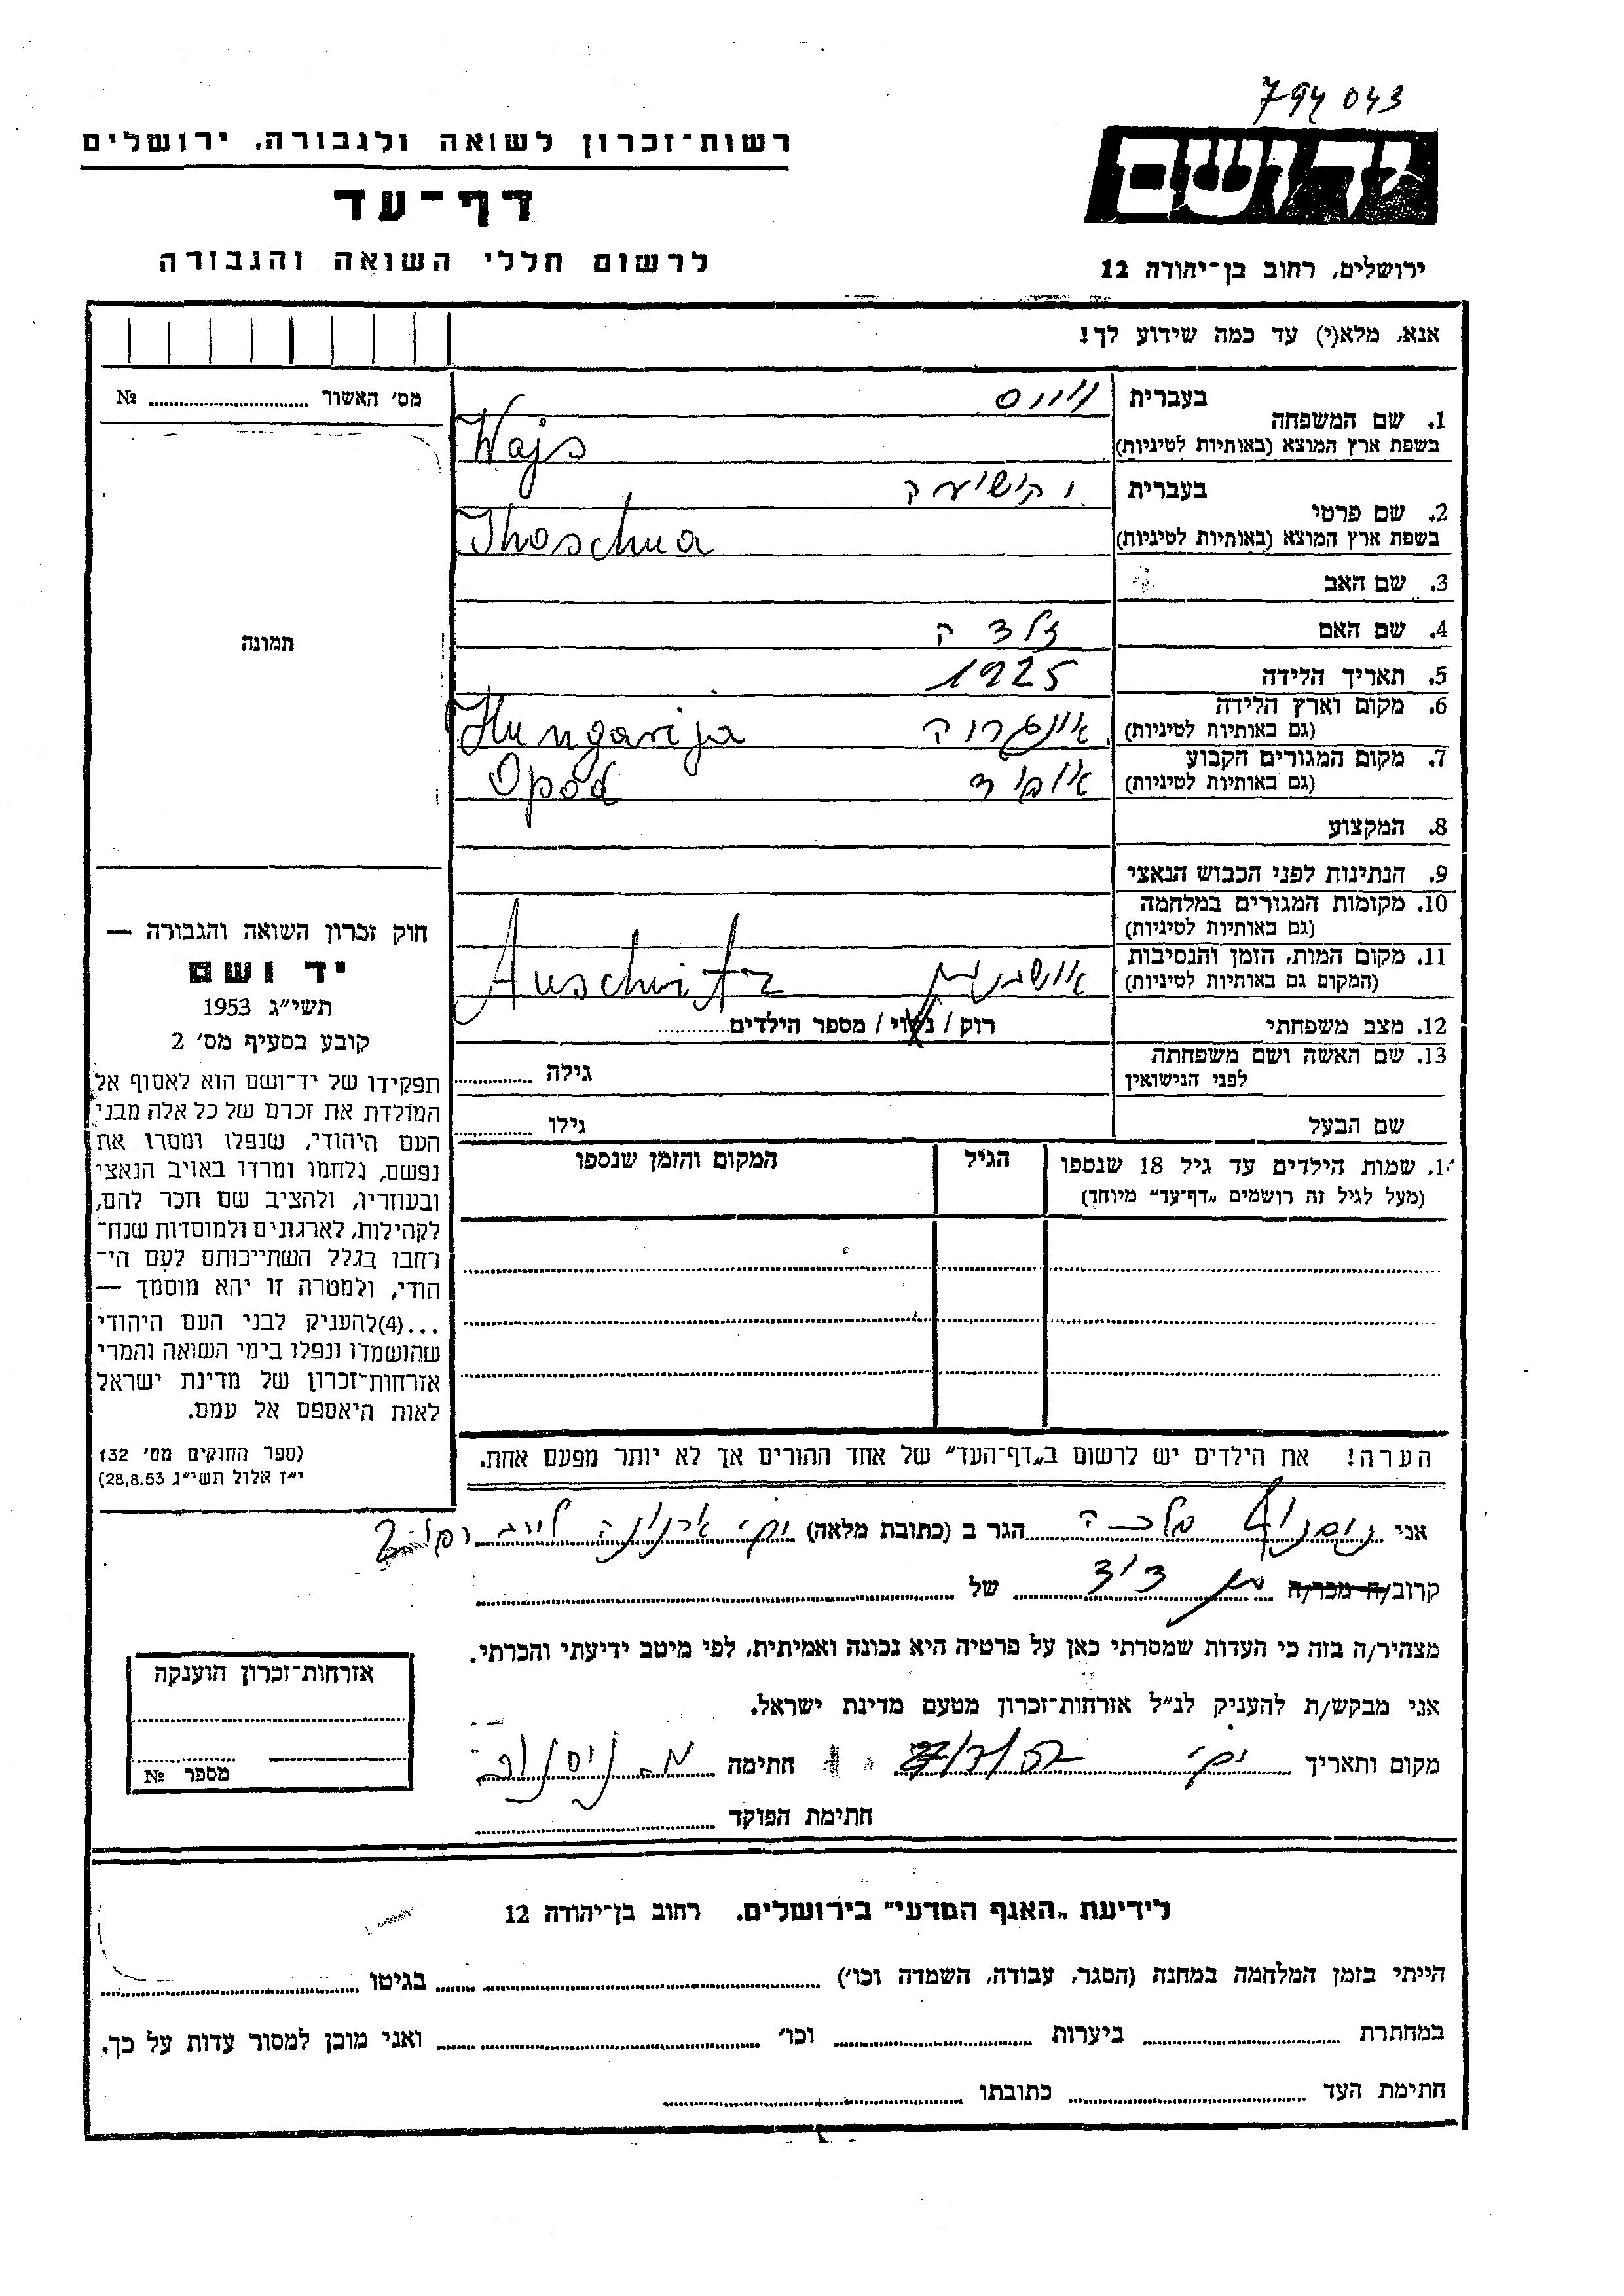 794043
רשות־זכרון לשואה ולגבורה, ירושלים
יד ושם
דף־עד
לרשום חללי השואה והגבורה
ירושלים, רחוב בן־יהודה 12
אנא, מלא(י) עד כמה שידוע לך!
מס׳ האשור № ....................
1. שם המשפחה
בעברית
ווייס
בשפת ארץ המוצא (באותיות לטיניות)
Wajs
2. שם פרטי
בעברית
יהושועה
בשפת ארץ המוצא (באותיות לטיניות)
Ihoschua
3. שם האב
4. שם האם
זלדה
5. תאריך הלידה
1925
6. מקום וארץ הלידה
(גם באותיות לטיניות)
אונגריה Hungarija
7. מקום המגורים הקבוע
(גם באותיות לטיניות)
Opod
8. המקצוע
9. הנתינות לפני הכבוש הנאצי
10. מקומות המגורים במלחמה
(גם באותיות לטיניות)
11. מקום המות, הזמן והנסיבות
(המקום גם באותיות לטיניות)
אושוויץ Auschwitz
12. מצב משפחתי
רוק / נשוי / מספר הילדים............
13. שם האשה ושם משפחתה
לפני הנישואין
גילה ............
שם הבעל
גילו ............
תמונה
חוק זכרון השואה והגבורה —
יד ושם
תשי״ג 1953
קובע בסעיף מס׳ 2
תפקידו של יד־ושם הוא לאסוף אל
המולדת את זכרם של כל אלה מבני
העם היהודי, שנפלו ומסרו את
נפשם, נלחמו ומרדו באויב הנאצי
ובעוזריו, ולהציב שם וזכר להם,
לקהילות, לארגונים ולמוסדות שנח־
רחבו בגלל השתייכותם לעם הי־
הודי, ולמטרה זו יהא מוסמך —
...(4)להעניק לבני העם היהודי
שהושמדו ונפלו בימי השואה והמרי
אזרחות־זכרון של מדינת ישראל
לאות היאספם אל עמם.
(ספר החוקים מס׳ 132
י״ז אלול תשי״ג 28.8.53)
1. שמות הילדים עד גיל 18 שנספו
(מעל לגיל זה רושמים „דף־עד״ מיוחד)
הגיל
המקום והזמן שנספו
הערה! את הילדים יש לרשום ב„דף־העד״ של אחד ההורים אך לא יותר מפעם אחת.
אני מלכה הגר ב (כתובת מלאה)
קרוב/ה מכר/ה בן דוד של
מצהיר/ה בזה כי העדות שמסרתי כאן על פרטיה היא נכונה ואמיתית, לפי מיטב ידיעתי והכרתי.
אני מבקש/ת להעניק לנ״ל אזרחות־זכרון מטעם מדינת ישראל.
מקום ותאריך חתימה
חתימת הפוקד
אזרחות־זכרון הוענקה
מספר №
לידיעת „האגף המדעי״ בירושלים. רחוב בן־יהודה 12
הייתי בזמן המלחמה במחנה (הסגר, עבודה, השמדה וכו׳) בגיטו
במחתרת ביערות וכו׳ ואני מוכן למסור עדות על כך.
חתימת העד כתובתו